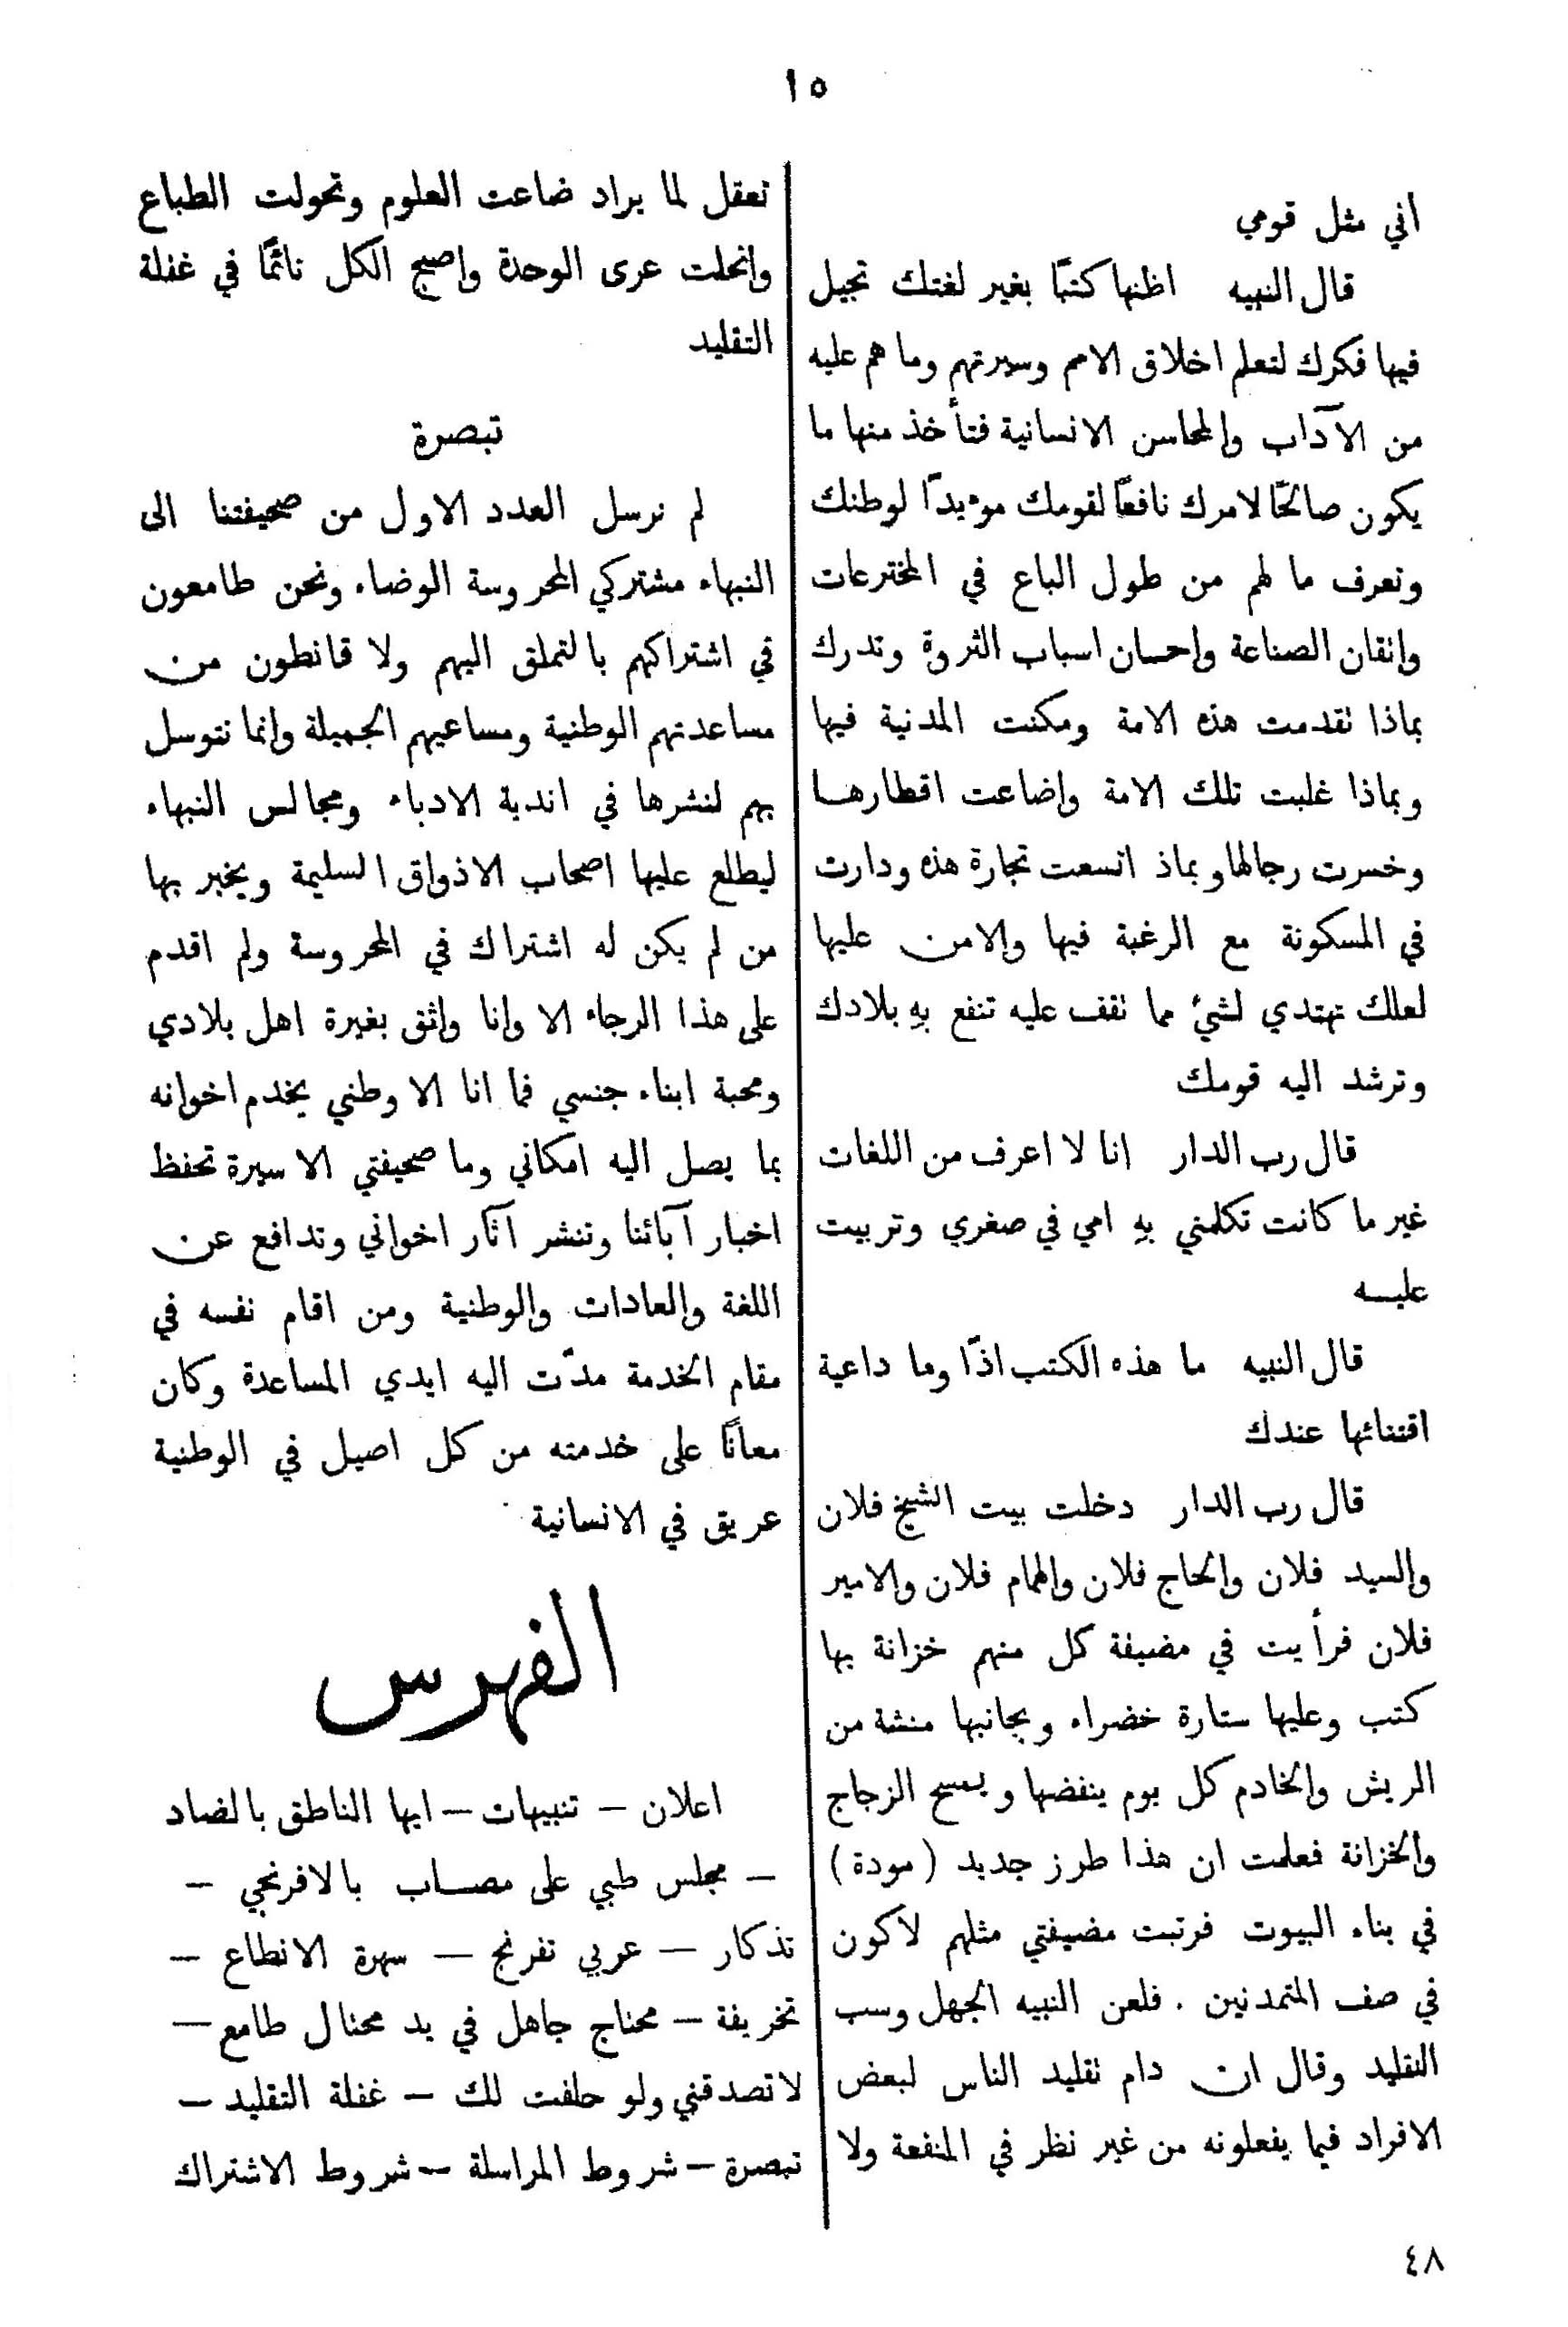 ١٥
اني مثل قومي
قال النبيه اظنها كتبًا بغير لغتك تجيل
فيها فكرك لتعلم اخلاق الامم وسيرتهم وما هم عليه
من الآداب والمحاسن الانسانية فتأخذ منها ما
يكون صالحًا لامرك نافعًا لقومك موءيدًا لوطنك
وتعرف ما لهم من طول الباع في المخترعات
واتقان الصناعة واحسان اسباب الثروة وتدرك
بماذا تقدمت هذه الامة ومكنت المدنية فيها
وبماذا غلبت تلك الامة واضاعت اقطارهـا
وخسرت رجالها وبماذ اتسعت تجارة هذه ودارت
في المسكونة مع الرغبة فيها والامن عليها
لعلك تهتدي لشيٍ مما تقف عليه تنفع بهِ بلادك
وترشد اليه قومك
قال رب الدار انا لا اعرف من اللغات
غير ما كانت تكلمني بهِ امي في صغري وتربيت
عليـه
قال النبيه ما هذه الكتب اذًا وما داعية
اقتنائها عندك
قال رب الدار دخلت بيت الشيخ فلان
والسيد فلان والحاج فلان والهمام فلان والامير
فلان فرأيت في مضيفة كل منهم خزانة بها
كتب وعليها ستارة خضراء وبجانبها منشة من
الريش والخادم كل يوم ينفضها ويمسح الزجاج
والخزانة فعلمت ان هذا طرز جديد (مودة)
في بناء البيوت فرتبت مضيفتي مثلهم لاكون
في صف المتمدنين . فلعن النبيه الجهل وسب
التقليد وقال ان دام تقليد الناس لبعض
الافراد فيما يفعلونه من غير نظر في المنفعة ولا
تعقل لما يراد ضاعت العلوم وتحولت الطباع
وانحلت عرى الوحدة واصبح الكل نائمًا في غفلة
التقليد
تبصرة
لم نرسل العدد الاول من صحيفتنا الى
النبهاء مشتركي المحروسة الوضاء ونحن طامعون
في اشتراكهم بالتملق اليهم ولا قانطون من
مساعدتهم الوطنية ومساعيهم الجميلة وانما نتوسل
بهم لنشرها في اندية الادباء ومجالس النبهاء
ليطلع عليها اصحاب الاذواق السليمة ويخبر بها
من لم يكن له اشتراك في المحروسة ولم اقدم
على هذا الرجاء الا وانا واثق بغيرة اهل بلادي
ومحبة ابناء جنسي فما انا الا وطني يخدم اخوانه
بما يصل اليه امكاني وما صحيفتي الا سيرة تحفظ
اخبار آبائنا وتنشر آثار اخواني وتدافع عن
اللغة والعادات والوطنية ومن اقام نفسه في
مقام الخدمة مدّت اليه ايدي المساعدة وكان
معانًا على خدمته من كل اصيل في الوطنية
عريق في الانسانية
الفهرس
اعلان – تنبيهات – ايها الناطق بالضاد
– مجلس طبي على مصـاب بالافرنجي –
تذكار – عربي تفرنج – سهرة الانطاع –
تخريفة – محتاج جاهل في يد محتال طامع –
لا تصدقني ولو حلفت لك – غفلة التقليد –
تبصرة – شروط المراسلة – شروط الاشتراك
٤٨